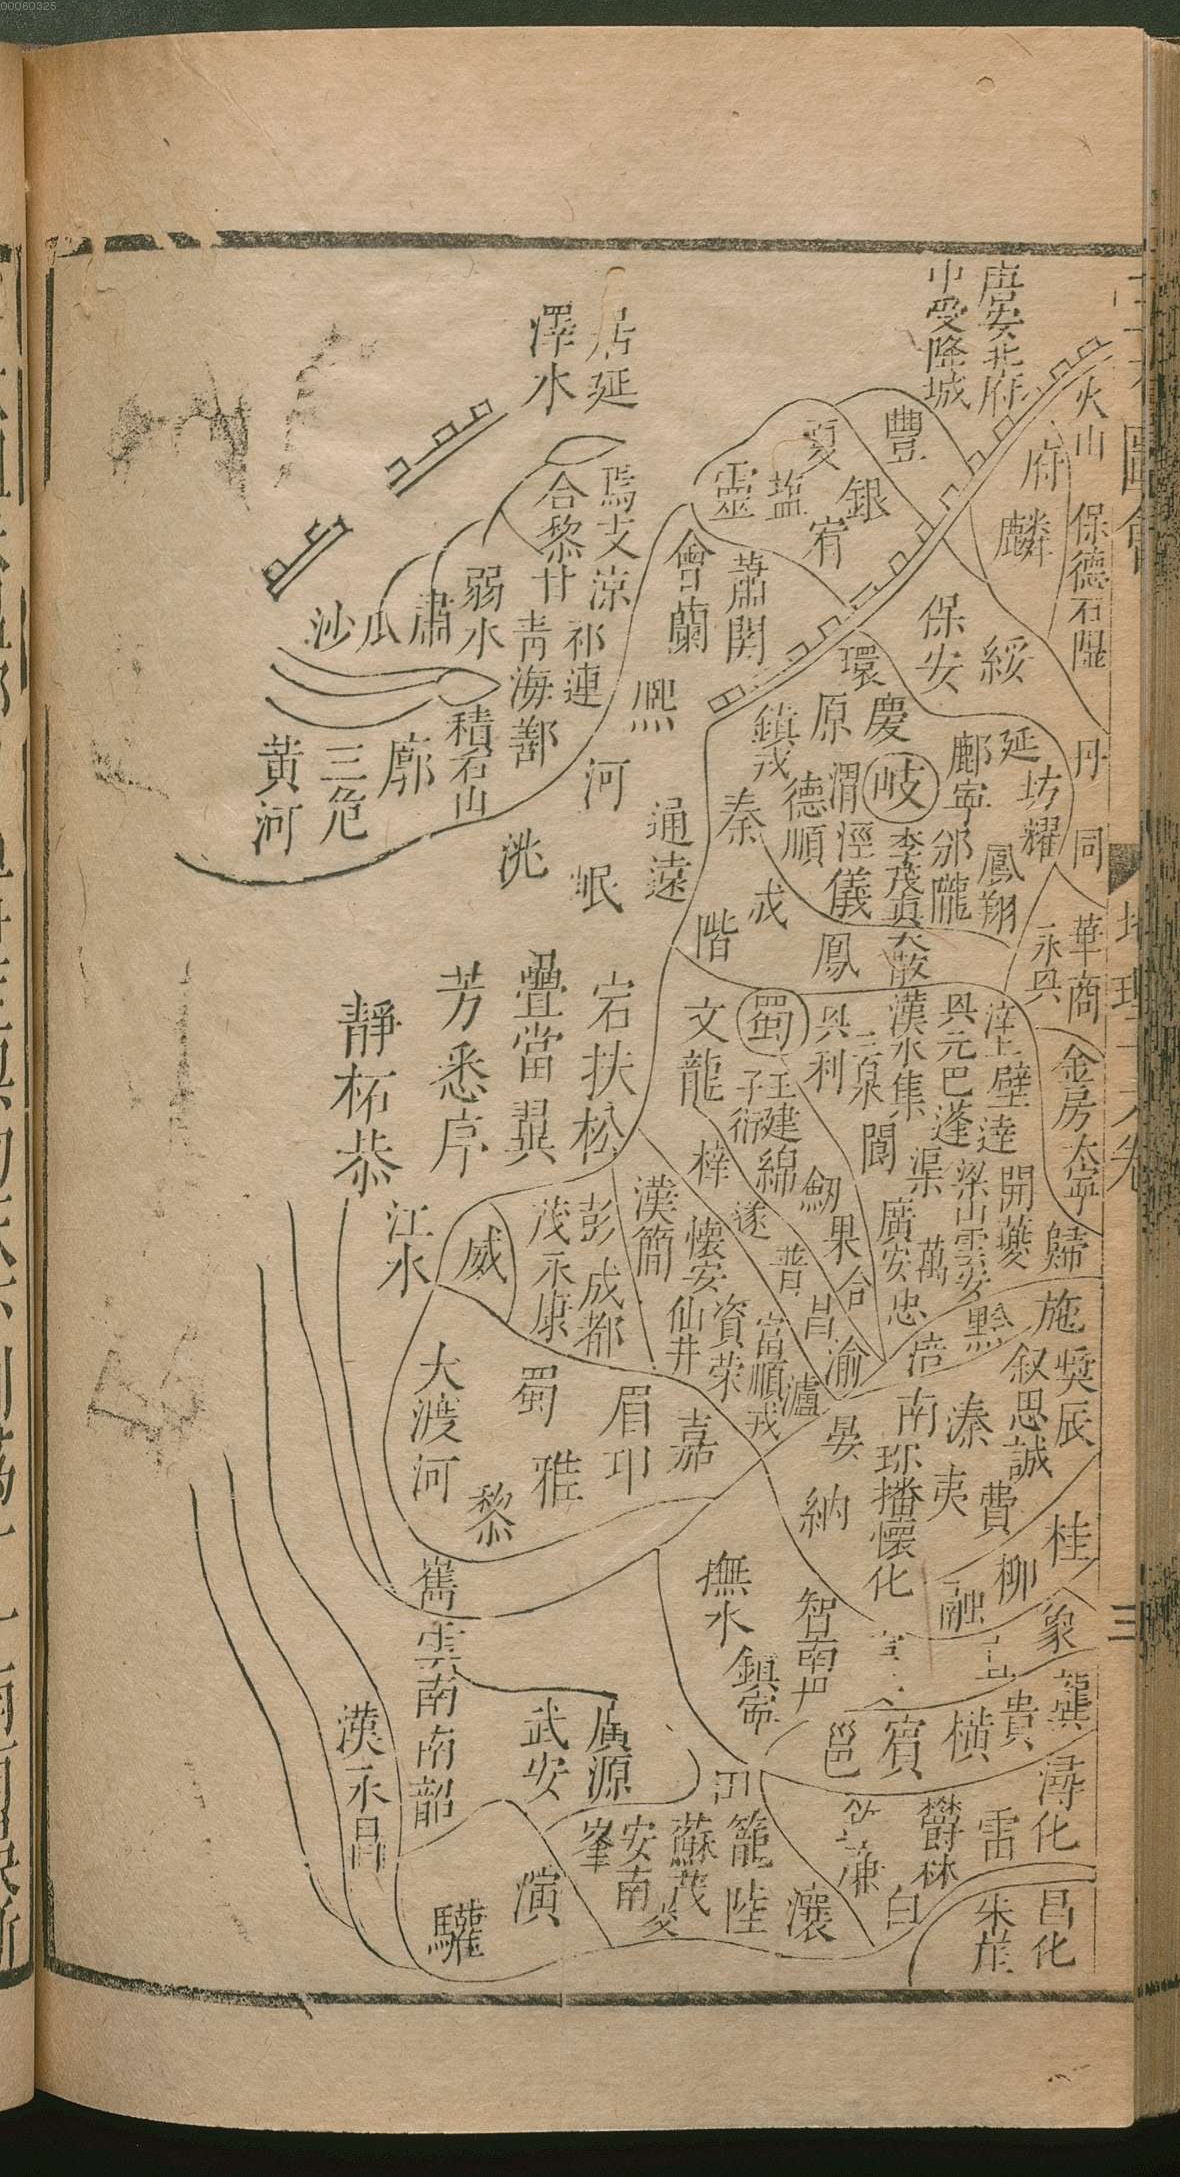 00060325
唐安北府
中受降城
火山
保德石隰
丹
同
華商
永興
金房太寧
歸
施
府
麟
豐
夏
銀
塩
靈
宥
居延
澤水
焉支
合黎
涼
甘
弱水
肅
瓜
沙
祁連
青海
鄯
積石山
廓
三危
黃河
會
蘭
蕭関
熈
河
洮
岷
通遠
保安
綏
環
慶
原
鎮戎
延
鄜
寧
坊
耀
岐
李茂貞
渭
德順
涇
儀
邠
隴
鳳翔
秦
成
階
鳳
大散
蜀
王建
子衍
文
龍
興
利
三泉
漢水
集
興元
巴
蓬
洋
壁
達
開
夔
閬
渠
梁山
雲安
廣安
萬
忠
黔
涪
綿
劒
果
合
梓
遂
普
昌
渝
漢
簡
懷安
仙井
資
荣
富順
瀘
戎
宕
扶
松
疊
當
翼
芳
悉
静
柘
恭
江水
威
茂
永康
彭
成都
大渡河
蜀
眉
卭
雅
嘉
黎
叙
奬
辰
思
誠
南
溱
珍
播
夷
費
懷化
晏
納
桂
柳
融
象
撫水
智
南
鎮寧
龔
貴
橫
賓
邕
潯
化
雷
欝林
白
亷
昌化
朱崖
雟
雲南
南韶
漢永昌
武安
廣源
籠
蘇茂
安南
峯
陸
瀼
演
驩
圖會
地理
三